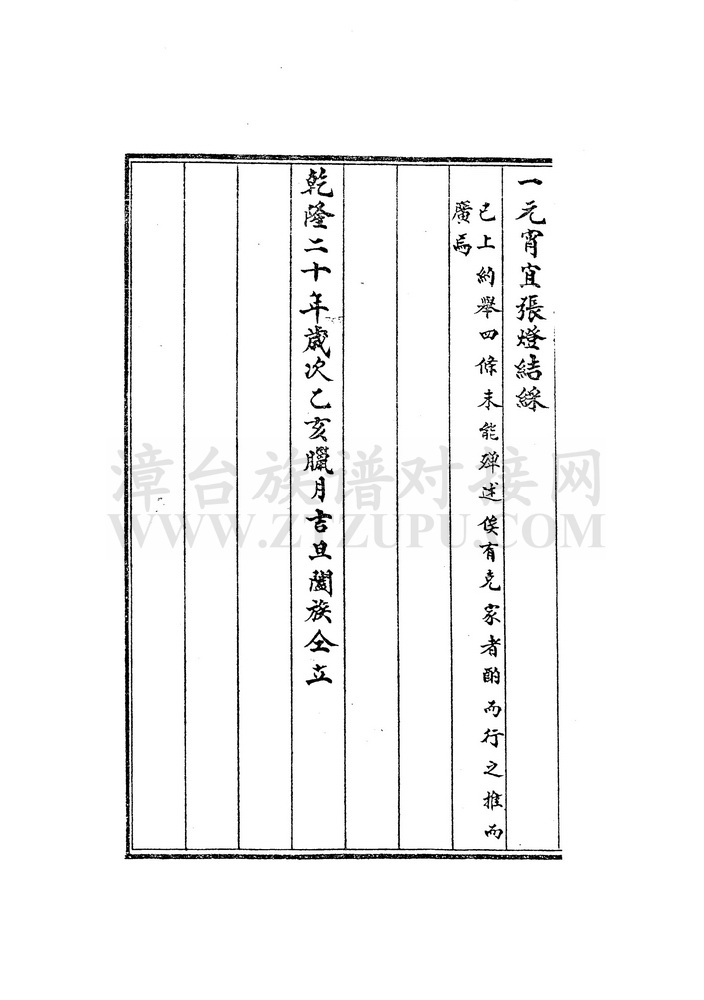 一元宵宜張燈結綵
已上約舉四條未能殫述俟有克家者酌而行之推而
廣焉
乾隆二十年歲次乙亥臘月吉旦闔族仝立
漳台族谱对接网
WWW.ZTZUPU.COM